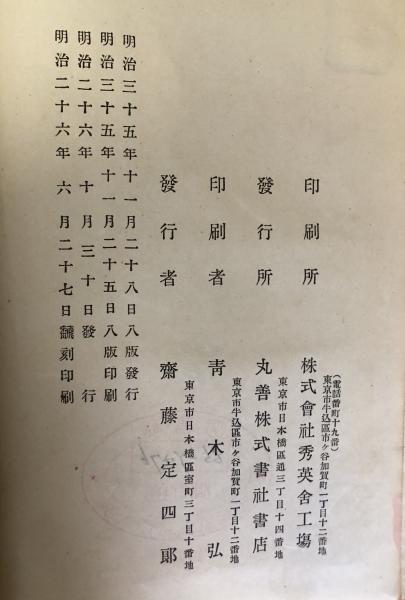 (電話番町十九番)
東京市牛込區市ヶ谷加賀町一丁目十二番地
印刷所 株式會社秀英舍工塲
東京市日本橋區通三丁目十四番地
發行所 丸善株式書社書店
東京市牛込區市ヶ谷加賀町一丁目十二番地
印刷者 青木弘
東京市日本橋區室町三丁目十番地
發行者 齋藤定四郎
明治三十五年十一月二十八日八版發行
明治三十五年十一月二十五日八版印刷
明治二十六年十月三十日發行
明治二十六年六月二十七日飜刻印刷